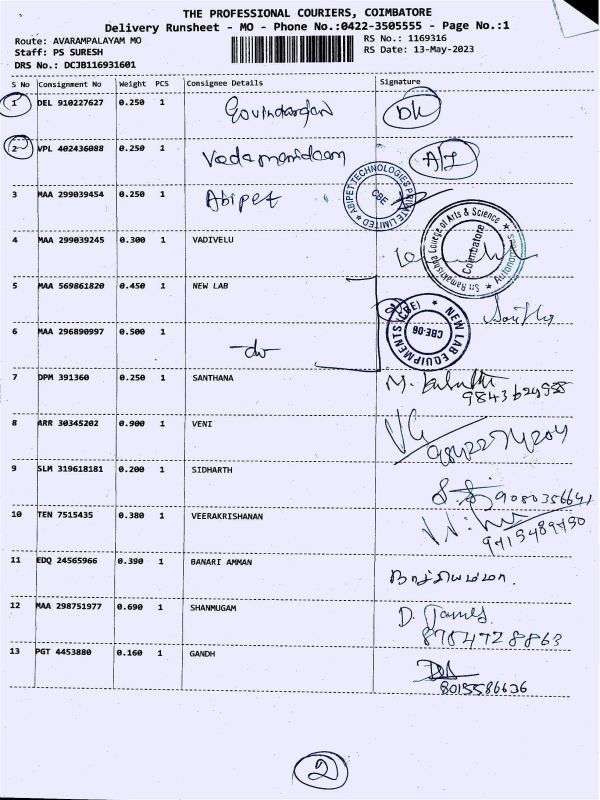 THE PROFESSIONAL COURIERS, COIMBATORE
Delivery Runsheet - MO - Phone No.:0422-3505555 - Page No.:1
Route: AVARAMPALAYAM MO
RS No.: 1169316
Staff: PS SURESH
RS Date: 13-May-2023
DRS No.: DCJB116931601
S No Consignment No Weight PCS Consignee Details Signature
1 DEL 910227627 0.250 1 Govindarajan
2 VPL 402436088 0.250 1 Vedamanickam
3 MAA 299039454 0.250 1 Abipet
ABIPET TECHNOLOGIES PRIVATE LIMITED
CBE
4 MAA 299039245 0.300 1 VADIVELU
Sri Ramakrishna College of Arts & Science
Autonomous
Coimbatore
5 MAA 569861820 0.450 1 NEW LAB
NEW LAB EQUIPMENTS (CBE)
CBE-06
6 MAA 296890997 0.500 1 -do-
7 DPM 391360 0.250 1 SANTHANA
8 ARR 30345202 0.900 1 VENI
9 SLM 319618181 0.200 1 SIDHARTH
9080356641
10 TEN 7515435 0.380 1 VEERAKRISHANAN
9715489790
11 EDQ 24565966 0.390 1 BANARI AMMAN
12 MAA 298751977 0.690 1 SHANMUGAM D. James
8784728863
13 PGT 4453880 0.160 1 GANDH
8015586636
2